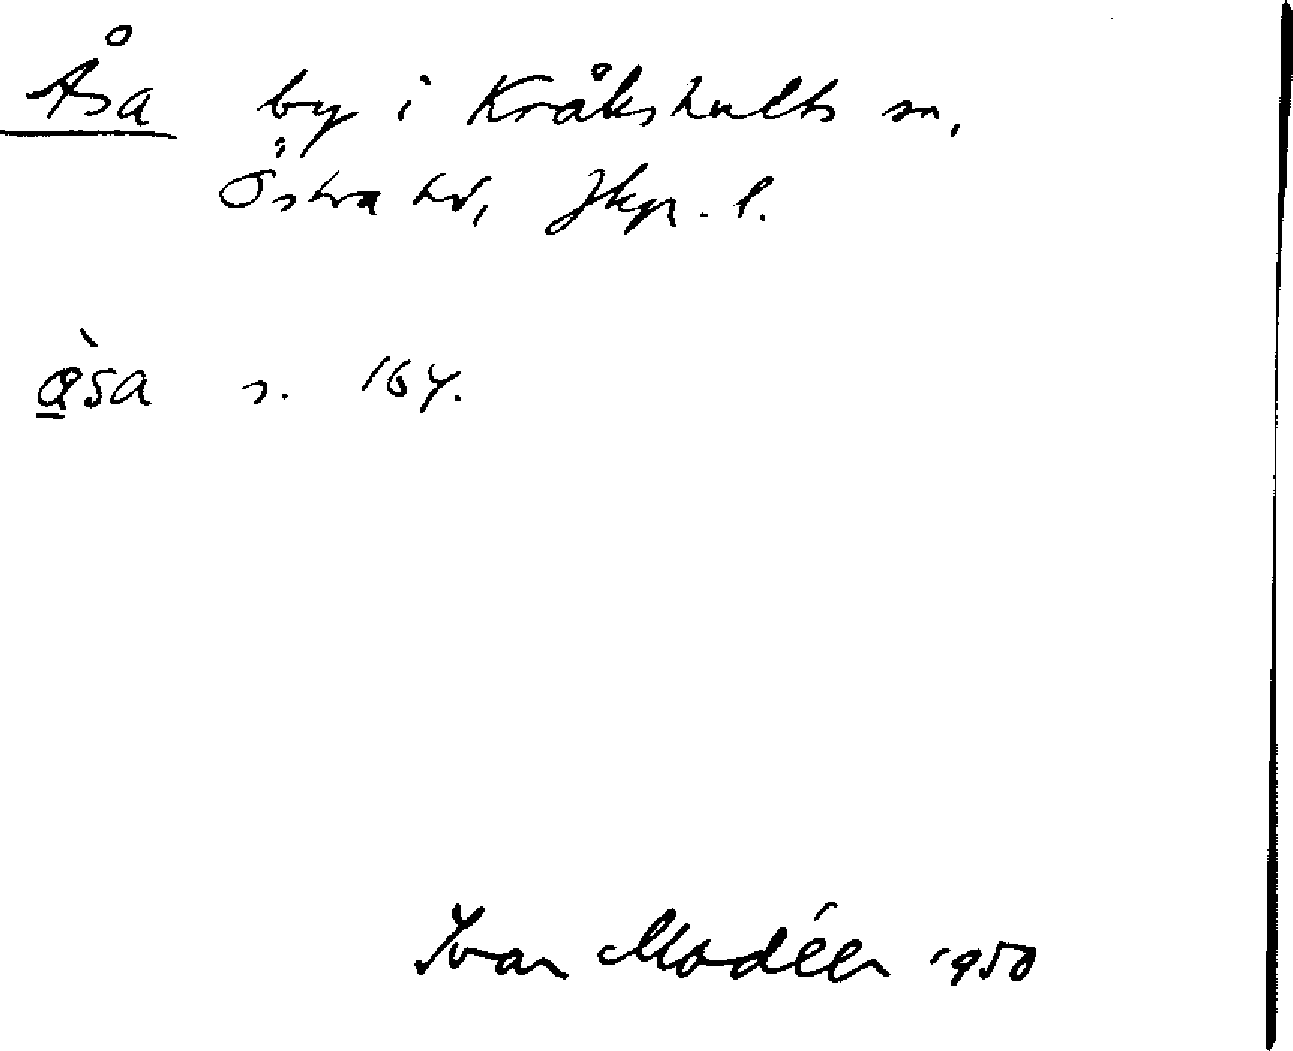 Åsa by i Kråkshults sn,
Östra hd, Jkpr. l.
åsa s. 164.
Ivar Modéer 1950